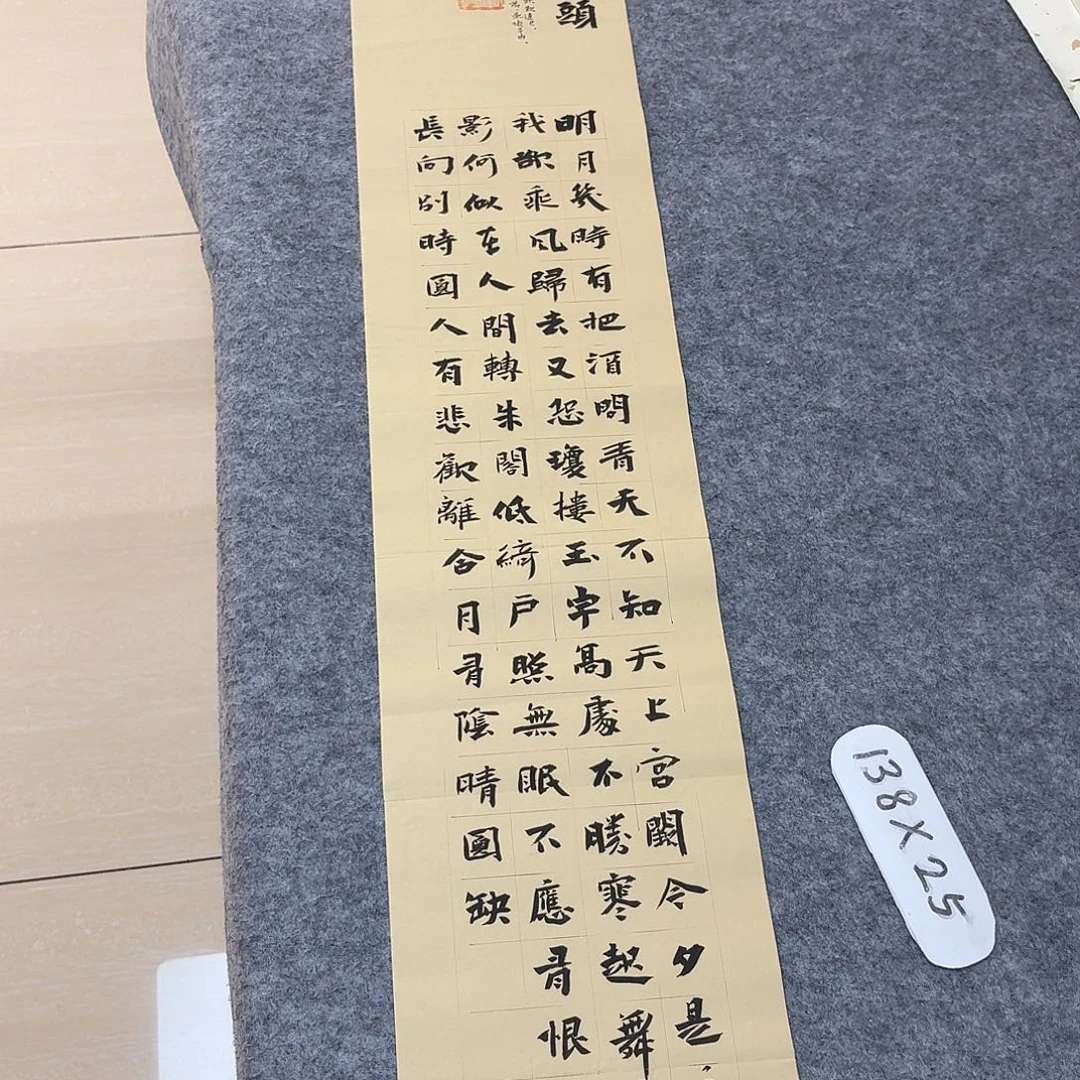 頭
明月幾時有把酒問青天不知天上宮闕今夕是
我欲乘風歸去又恐瓊樓玉宇高處不勝寒起舞
影何似在人間轉朱閣低綺戶照無眠不應有恨
長向別時圓人有悲歡離合月有陰晴圓缺
138X25